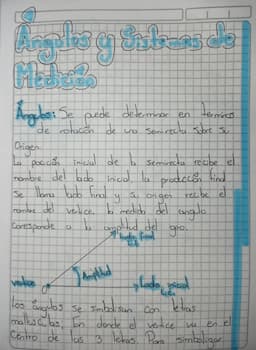 Ángulos y Sistemas de
Medición
Ángulos: Se puede determinar en terminos
de rotación de una semirecta sobre su
Origen.
La posición inicial de la semirecta recibe el
nombre del lado inicial, la posición final
se llama lado final y su origen recibe el
nombre del vertice. la medida del angulo
corresponde a la amplitud del giro.
Lado final
Amplitud
vertice
Lado inicial
Los ángulos se simbolizan con letras
mayúsculas, en donde el vertice va en el
centro de las 3 letras. Para simbolizar